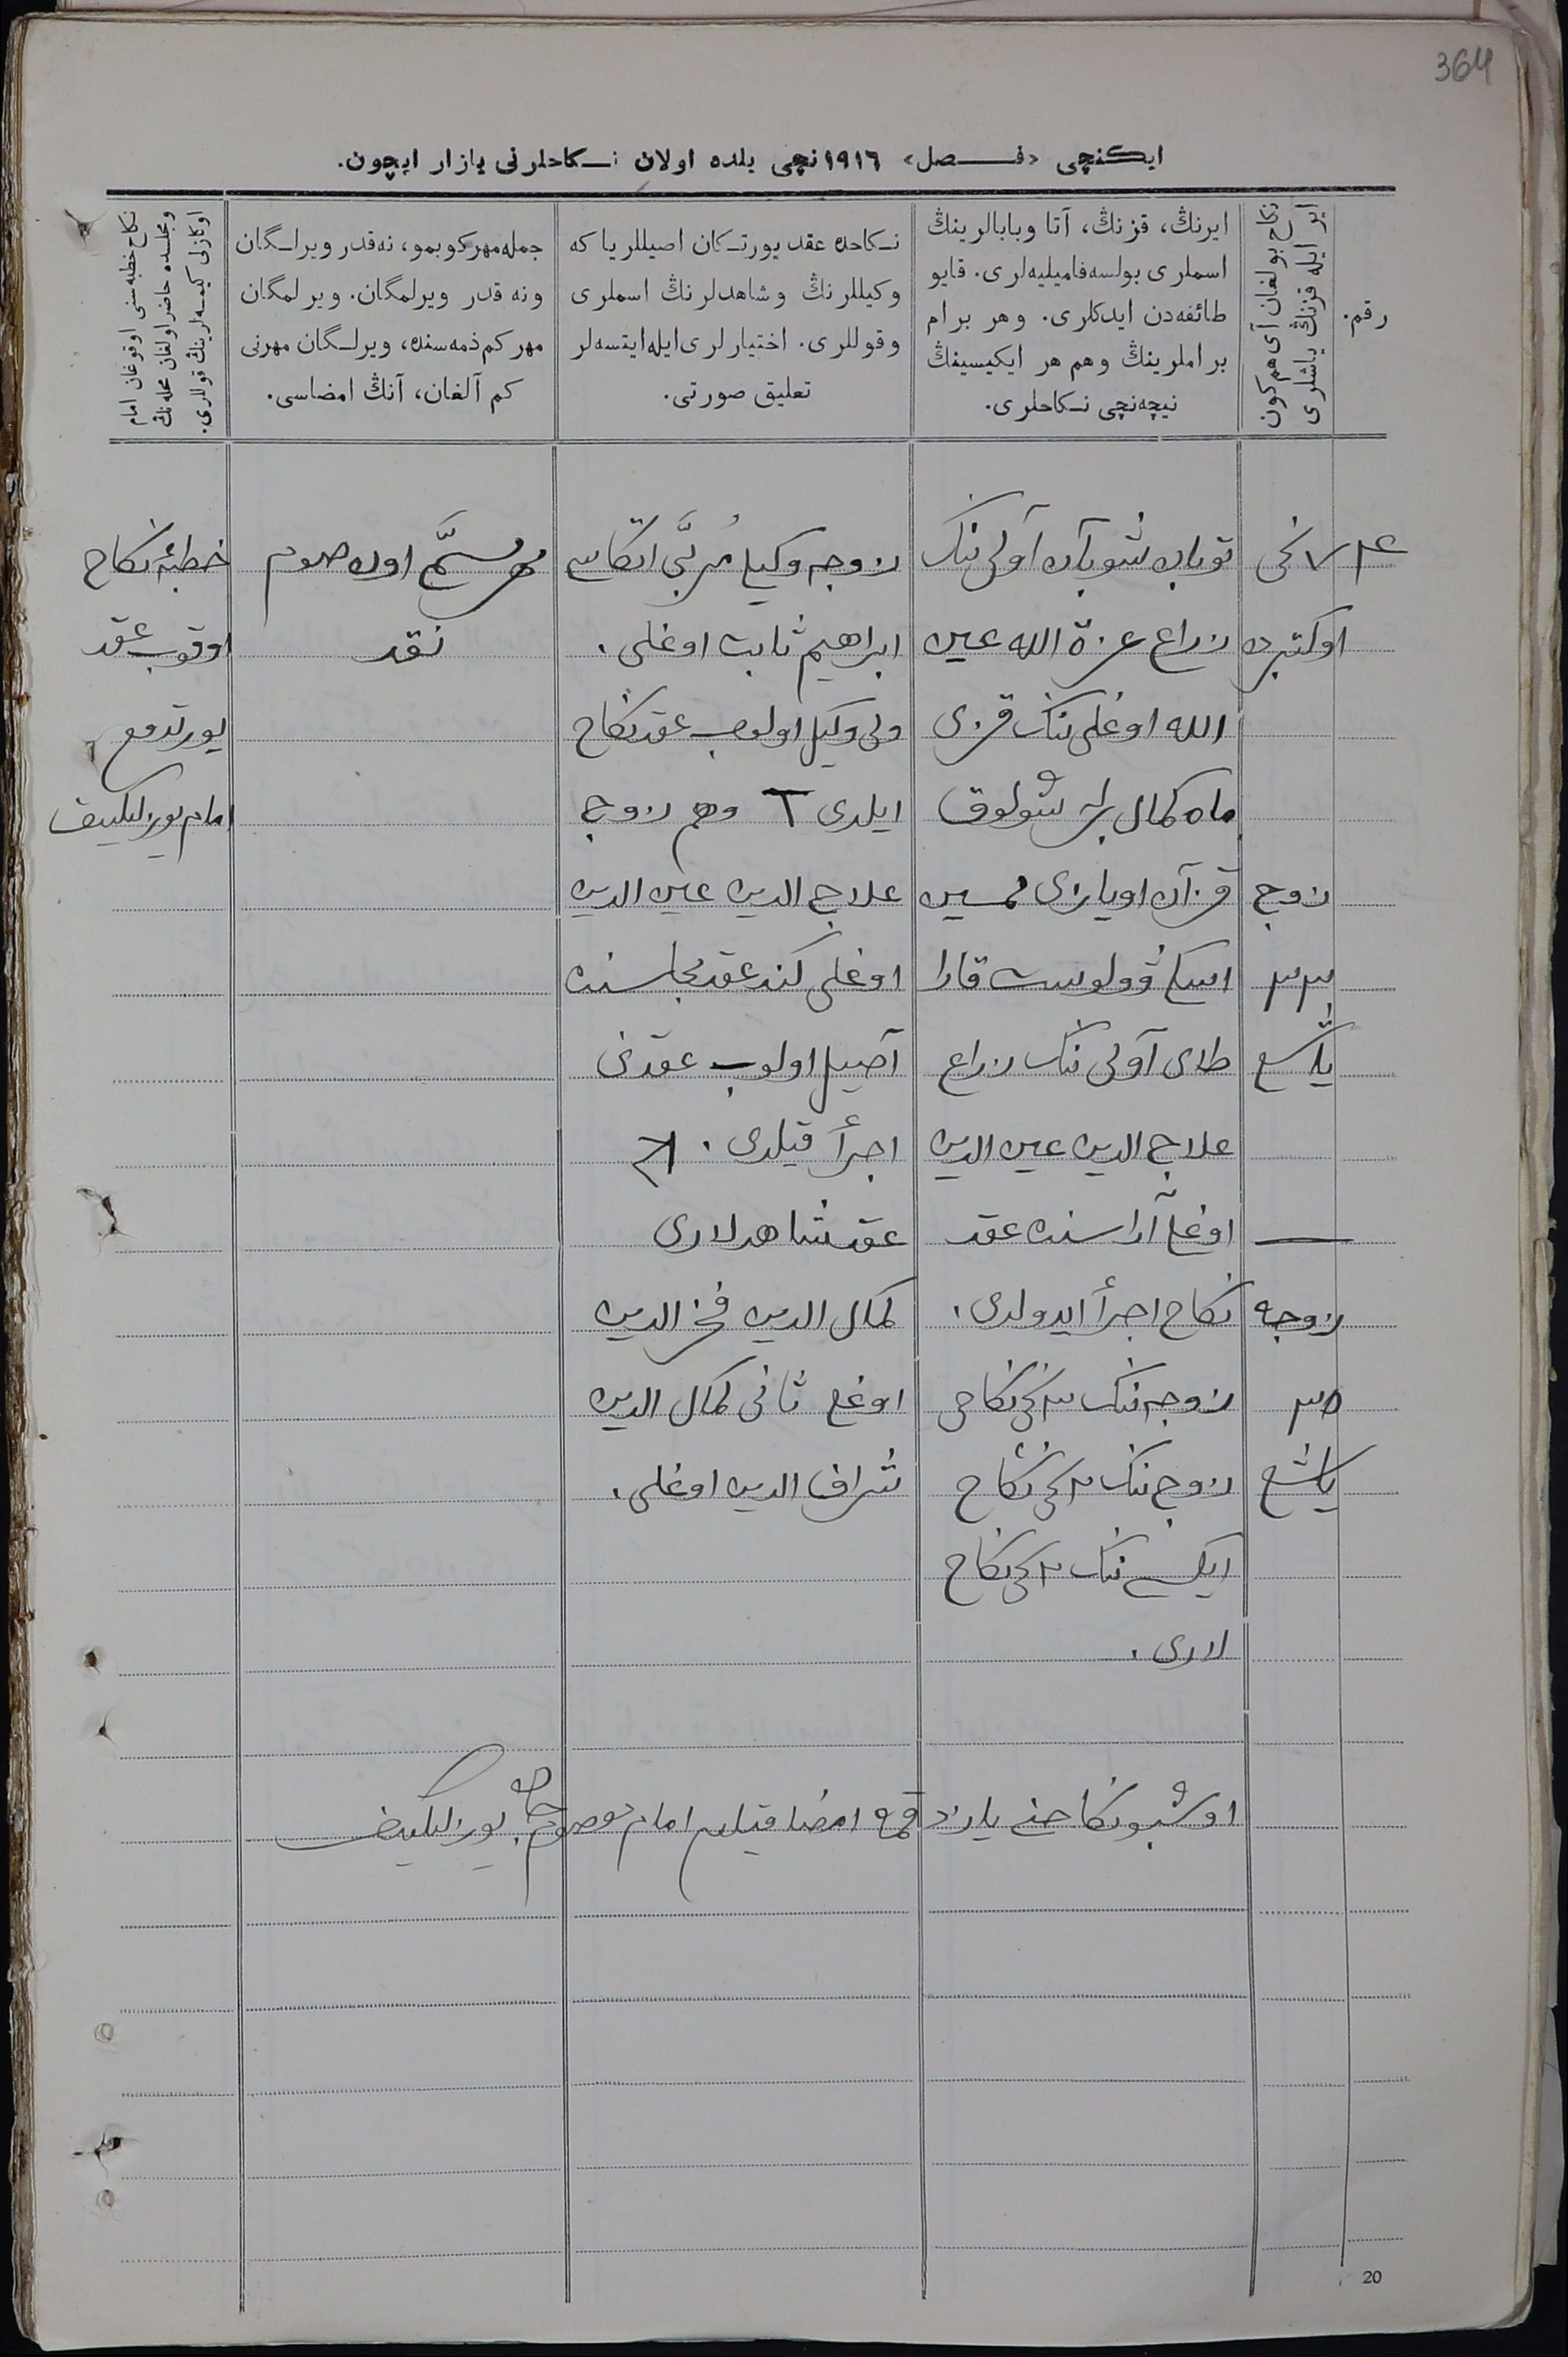 364
ایكنچی «فصل» ١٩١٦ نچی یلده اولان نكاحلرنی یازار ایچون.
رقم.
نكاح بولغان آی هم كون
ایر ایله قزنڭ یاشلری
ایرنڭ، قزنڭ، آتا وبابالرینڭ
اسملری بولسه فامیلیه‌لری. قایو
طائفه‌دن ایدكلری. وهر برام
براملرینڭ وهم هر ایكیسینڭ
نیچه‌نچی نكاحلری.
نكاحده عقد یورتكان اصیللر یا كه
وكیللرنڭ وشاهدلرنڭ اسملری
وقوللری. اختیارلری ایله ایتسه‌لر
تعلیق صورتی.
جمله مهر كوبمو، نه قدر ویرلگان
ونه قدر ویرلمگان. ویرلمگان
مهر كم ذمه‌سنده، ویرلگان مهرنی
كم آلغان، آنڭ امضاسی.
نكاح خطبه‌سنی اوقوغان امام
ومجلسده حاضر اولغان محله‌نڭ
اوكازلی كیمسه‌لرینڭ قوللری.
٧ نچی
اوكتبرده
زوج
٣٣
یاشع
زوجه
٣٥
یاشع
توبان شوبان آولی ننك
زراع عزة الله عین
الله اوغلی ننك قزی
ماه كمال برله شولوق
قزان اویازی
وولوست قارا
طای آولی ننك زراع
علاج الدین عین الدین
اوغلی آراسنده عقد
نكاح اجرأ ایدولدی.
زوجه ننك ٣ نچی نكاحی
زوج ننك ٢ نچی نكاح
ایكسی ننك ٢ نچی نكاح
لاری.
زوجه وكیلی مُربَّی اتكاسی
ابراهیم ثابت اوغلی.
ولی وكیل اولوب عقد نكاح
ایلدی وهم زوج
علاج الدین عین الدین
اوغلی كند عقد مجلسنده
آصیل اولوب عقدنی
اجرأ قیلدی.
عقد شاهدلاری
كمال الدین فخر الدین
اوغلی ثانی كمال الدین
شراف الدین اوغلی.
مهر مسمَّی اون صوم
نقد
خطبۀ نكاح
اوقوب عقد
یورتدوم
امام
اوشبو نكاحنی یازدقمه امضا قیلام امام معصوم
20